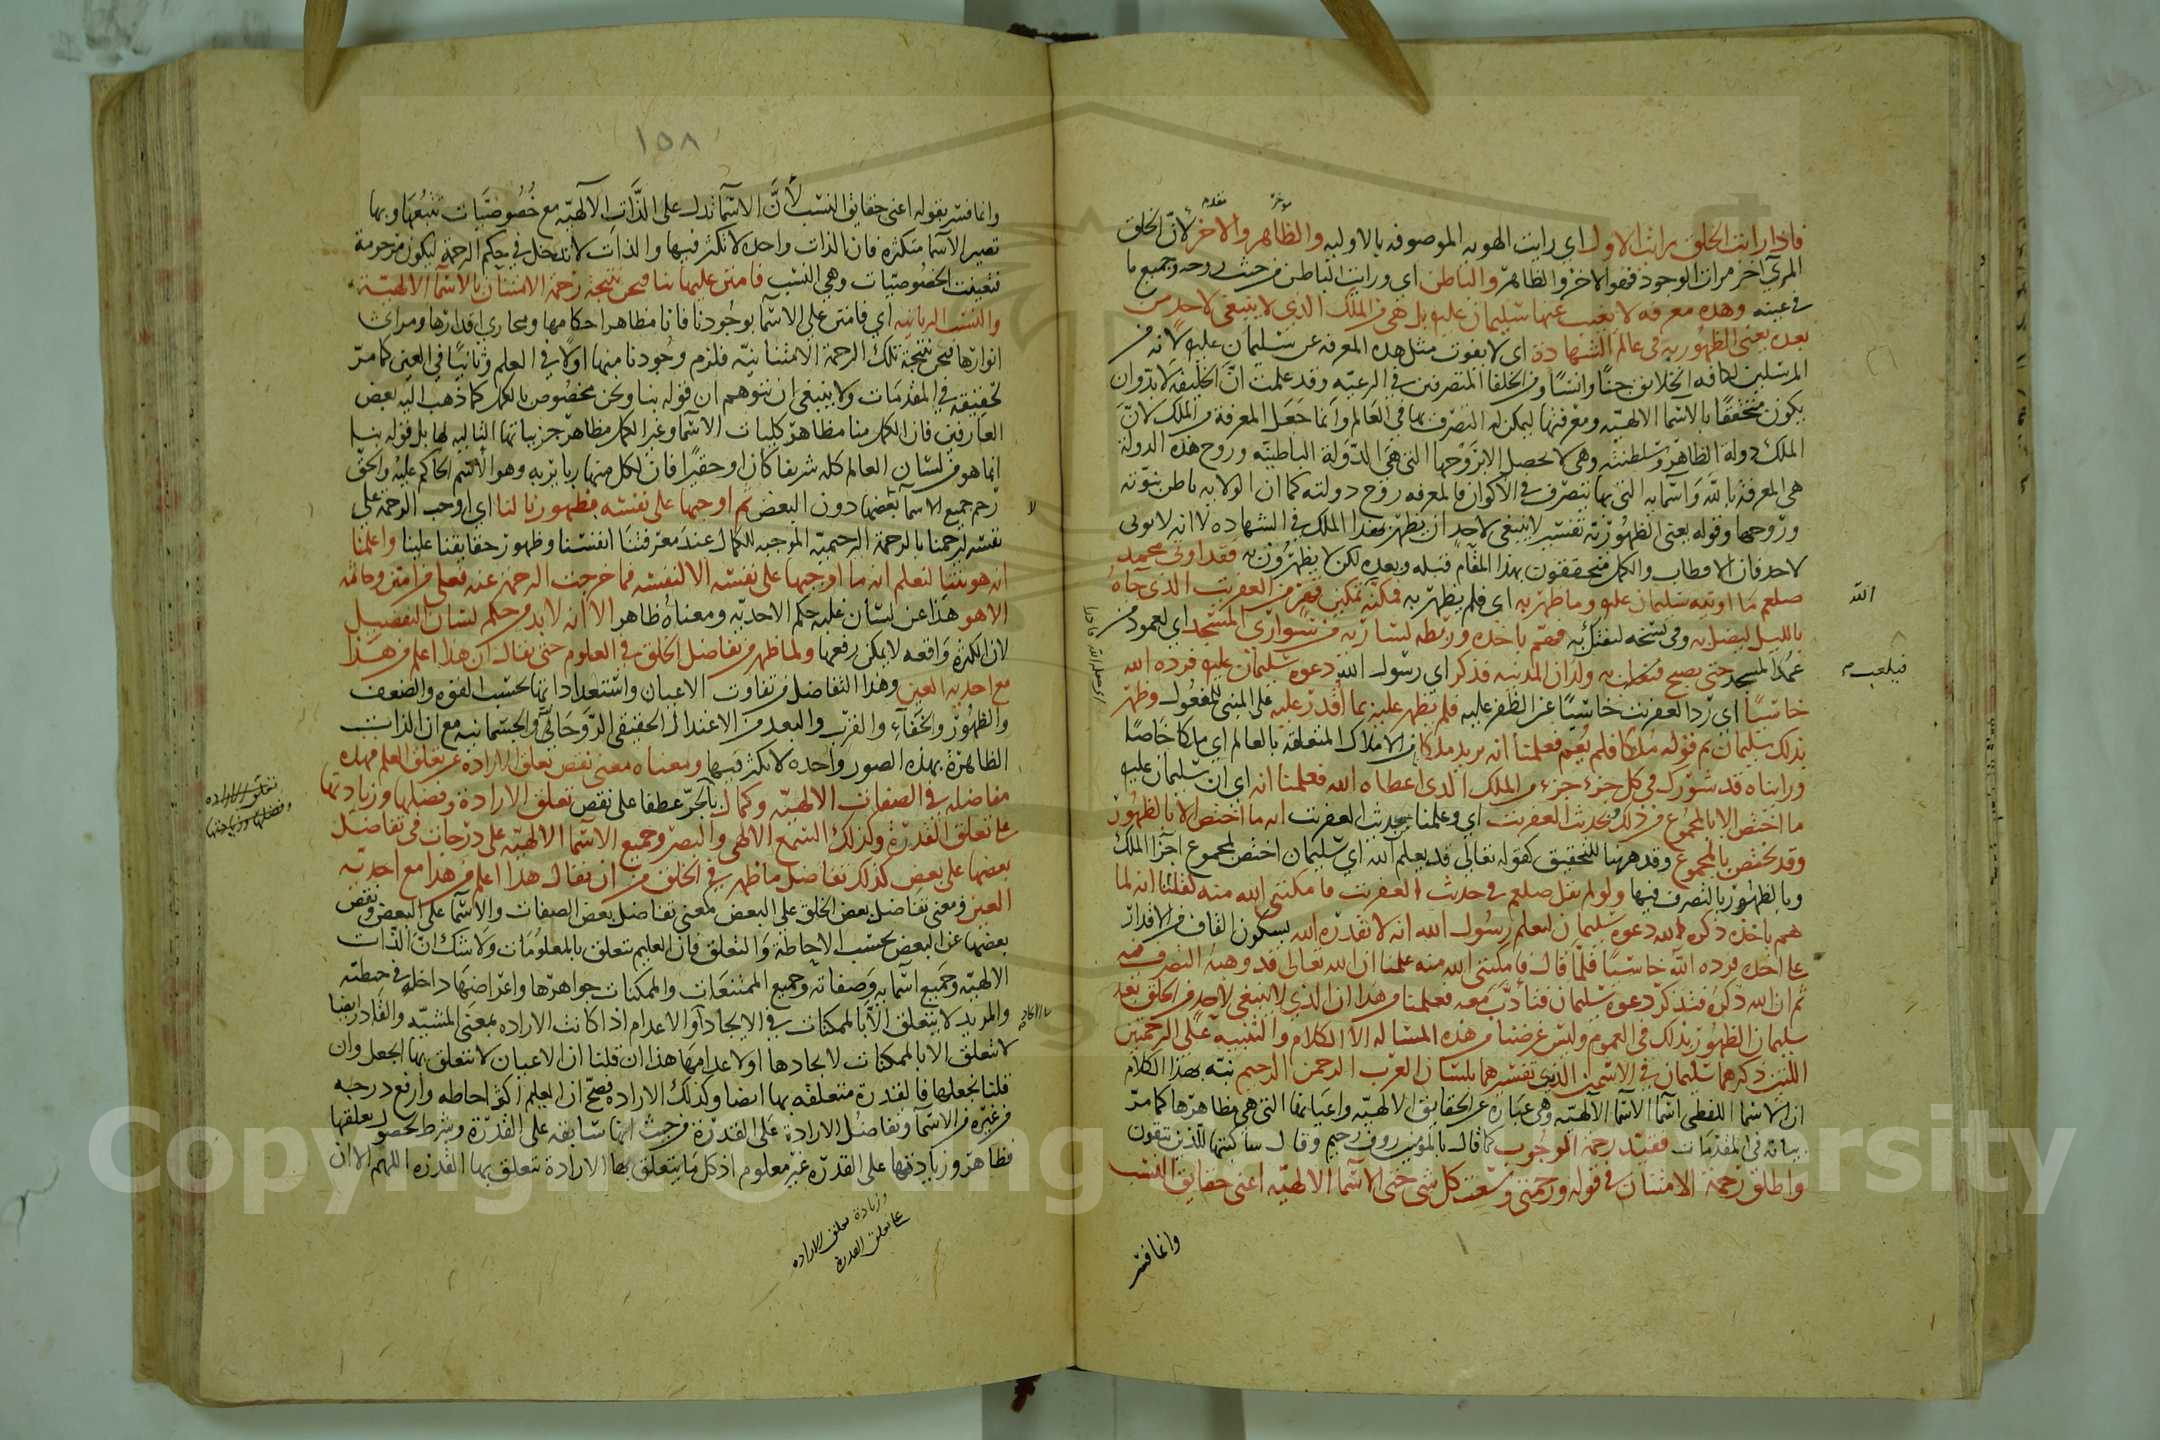 فاذا رايت الخلق رايت الاول اي رايت الهويه الموصوفه بالاوليه والظاهر والاخر لانّ الخلق
المرئي اخر مراتب الوجود فهو الاخر والظاهر والباطن اي ورايت الباطن من حيث روحه وجميع ما
في غيبه وهذه معرفه لا يغيب عنها سليمان عليه بل هي من الملك الذي لا ينبغي لاحد من
بعده يعني الظهور به في عالم الشهادة اي لا يفوت مثل هذه المعرفة عن سليمان عليه لانه من
المرسلين لكافه الخلايق جنًّا وانسًا ومن الخلفا المتصرفين في الرعيه وقد علمت انّ الخليفه لا بدّ وان
يكون متحققًا بالاسما الالهيّه ومعرفتها ليمكن له التصرف بها في العالم وانما جعل المعرفة من الملك لانّ
الملك دولة الظاهر وسلطنته وهي لا تحصل الا بروحها التي هي الدّولة الباطنيّه وروح هذه الدولة
هي المعرفة بالله واسمايه التي بها يتصرف في الاكوان فالمعرفه روح دولته كما ان الولايه باطن نبوّته
وروحها وقوله يعني الظهور به تفسير لا ينبغي لاحد ان يظهر بهذا الملك في الشهاده لا انه لا يوتى
لاحد فان الاقطاب والكمل متحققون بهذا المقام قبله وبعده لكن لا يظهرون به فقد اوتي محمد
صلعم ما اوتيه سليمان عليه وما ظهر به اي فلم يظهر به فمكنّه تمكين قهر من العفريت الذي جاهُ
بالليل ليضل به وفي نسخه ليفتك به فهمّ باخذه وربطه بسارية من سواري المسجد اي لعمود من
عمُد المسجد حتى يصبح فتلعب به ولدان المدينه فذكر اي رسول الله دعوه سليمان عليه فرده الله
خاسيًا اي ردّ العفريت خاسيًا عن الظفر عليه فلم يظهر عليه بما اُقدر عليه على المبني للمفعول وظهر
بذلك سليمان ثم قوله مُلكًا فلم يعُم فعلمنا انه يريد ملكا من الاملاك المتعلقة بالعالم اي ملكا خاصًّا
وراينا ه قد شورك في كل جزء جزء من الملك الذي اعطاه الله فعلمنا انه اي ان سليمان عليه
ما اختص الا بالمجموع من ذلك وبحديث العفريت اي وعلمنا بحديث العفريت انه ما اختص الا بالظهور
وقد يختص بالمجموع وقد ههنا للتحقيق كقوله تعالى قد يعلم الله اي سليمان اختص بمجموع اجزا الملك
وبالظهور بالتصرف فيها ولو لم يقل صلعم في حديث العفريت فامكنني الله منه لقلنا انه لما
همّ باخذه ذكره الله دعوه سليمان ليعلم رسول الله انه لا يقدره الله بسكون القاف من الاقدار
على اخذه فرده الله خاسيًا فلمّا قال فامكنني الله منه علمنا ان الله تعالى قد وهبه التصرف فيه
ثم ان الله ذكره فتذكر دعوه سليمان فتادّب معه فعلمنا من هذا ان الذي لا ينبغي لاحد من الخلق بعد
سليمان الظهور بذلك في العموم وليس غرضنا من هذه المساله الا الكلام والتنبيه على الرحمتين
اللتين ذكرهما سليمان في الاسمين الذين تفسيرهما بلسان العرب الرحمن الرحيم نبّه بهذا الكلام
ان الاسما اللفظي اسما الاسما الالهيّه وهي عبارة عن الحقايق الالهيّه واعيانها التي هي مظاهرها كما مرّ
بيانه في المقدمات فقيّد رحمة الوجوب كما قال بالمومنين روف رحيم وقال ساكتبها للذين يتقون
واطلق رحمة الامتنان في قوله ورحمتي وسعت كل شي حتى الاسما الالهيّه اعني حقايق النسب
وانما فسّر
موخر
مقدم
الله
فيلعب
١٥٨
وانما فسّر بقوله اعني حقايق النسب لأنّ الاسما تدل على الذّات الالهيّه مع خُصُوصيّات تتبعها وبها
تصير الاسما متكثره فان الذات واحده لا تكثر فيها والذات لا تدخل في حكم الرحمة ليكون مرحومة
فتعينت الخصُوصيّات وهي النسب فامتن عليها بنا فنحن نتيجة رحمة الامتنان بالاسما الالهيّة
والنسب الربانيه اي فامتن على الاسما بوجُودنا فانا مظاهر احكامها ومجاري اقدارها ومراى
انوارها فنحن نتيجة تلك الرحمة الامتنانيّه فلزم وجودنا منها اولًا في العلم وثانيًا في العين كما مرّ
تحقيقه في المقدمات ولا ينبغي ان يتوهم ان قوله بنا ونحن مخصُوص بالكمل كما ذهب اليه بعض
العارفين فان الكمل منا مظاهر كليات الاسما وغير الكمل مظاهر جزيياتها التاليه لها بل قوله بنا
انما هو من لسان العالم كله شريفا كان او حقيرًا فان لكل منها ربا يربه وهو الاسم الحاكم عليه والحقّ
رحم جميع الاسما بعضها دون البعض ثم اوجبها على نفسه بظهورنا لنا اي اوجب الرحمة على
نفسه ليرحمنا بالرحمة الرحيميّه الموجبه للكمال عند معرفتنا انفسنا وظهور حقايقنا علينا واعلمنا
انه هويتنا لنعلم انه ما اوجبها على نفسه الا لنفسه فما خرجت الرحمة عنه فعلى من امتن وما ثمّه
الا هو هذا عن لسان غلبه حكم الاحديّه ومعناه ظاهر الا انه لا بد من حكم لسان التفصيل
لان الكثرة واقعه لا يمكن رفعها ولما ظهر من تفاضل الخلق في العلوم حتى يقال ان هذا اعلم من هذا
مع احديه العين وهذا التفاضل من تفاوت الاعيان واستعداداتها بحسب القوه والضعف
والظهُور والخفاء والقرب والبعد من الاعتدال الحقيقي الرّوحاني والجسمانيه مع ان الذات
الظاهرة بهذه الصور واحده لا تكثر فيها ومعناه معنى نقص تعلق الاراده عن تعلق العلم فهذه
مفاضله في الصفات الالهيّه وكمال بالجرّ عطفا على نقص تعلق الارادة وفضلها وزيادتها
على تعلق القدرة ولذلك السّمع الالهي والبصر وجميع الاسما الالهيّه على درجات في تفاضل
بعضها على بعض كذلك تفاضل ما ظهر في الخلق من ان يقال هذا اعلم من هذا مع احديه
العين ومعنى تفاضل بعض الخلق على البعض معنى تفاضل بعض الصفات والاسما على البعض ونقص
بعضها عن البعض بحسب الاحاطة والتعلق فان العليم يتعلق بالمعلومات ولا شك انّ الذات
الالهيّه وجميع اسمايه وصفاته وجميع الممتنعات والممكنات جواهرها واعراضها داخله في حيطته
والمريد لا يتعلق الا بالممكنات في الايجاد او الاعدام اذا كانت الاراده بمعنى المشيّه والقادر ايضا
لا يتعلق الا بالممكنات لايجادها او لاعدامها هذا ان قلنا ان الاعيان لا تتعلق بها الجعل وان
قلنا بجعلها فالقدرة متعلقه بها ايضا وكذلك الاراده فصحّ ان العلم اكثر احاطه وارفع درجه
من غيره من الاسما وتفاضُل الارادة على القدرة من حيث انها سابقه على القدرة وشرط لحصول تعلقها
فظاهر وزيادتها على القدره غير معلوم اذ كل ما يتعلق بها الارادة تتعلق بها القدره اللهم الا ان
وزيادة تعلق الاراده
على تعلق القدرة
تعلق الاراده
وفضلها وزيادتها
Copyright © King University